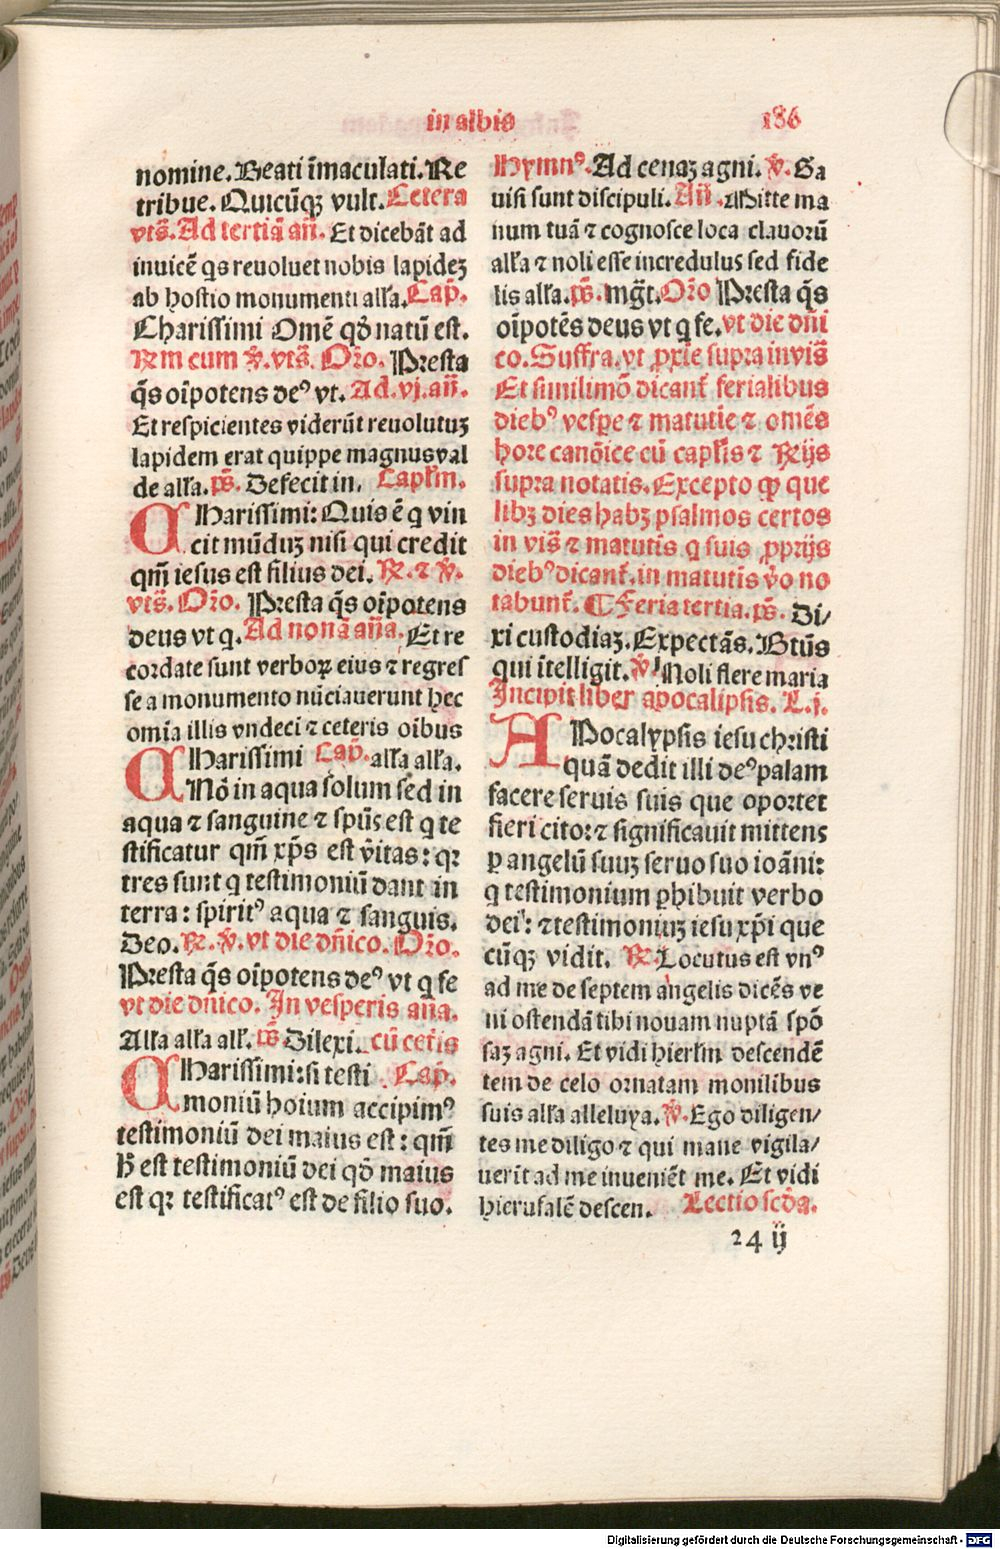 in albis
186
nomine. Beati īmaculati. Re
tribue. Quicūqꝫ vult. Cetera
vts̄. Ad tertiā an̄. Et dicebāt ad
inuicē q̄s reuoluet nobis lapideꝫ
ab hostio monumenti alľa. Cap̄.
Charissimi Omē qđ natū est.
R̄m cum v̄. vts̄. Or̄o. Presta
q̄s oīpotens deꝰ vt. Ad .vj. an̄.
Et respicientes viderūt reuolutuꝫ
lapidem erat quippe magnus val
de alľa. ps̄. Defecit in. Capľm.
CHarissimi: Quis ē q vin
cit mūduꝫ nisi qui credit
qm̄ iesus est filius dei. R̄. ⁊ v̄.
vts̄. Or̄o. Presta q̄s oīpotens
deus vt q. Ad nonā an̄a. Et re
cordate sunt verboꝝ eius ⁊ regres
se a monumento nūciauerunt hec
omīa illis vndeci ⁊ ceteris oibus
CHarissimi Cap̄. alľa alľa.
Nō in aqua solum sed in
aqua ⁊ sanguine ⁊ spūs est q te
stificatur qm̄ xp̄s est v̄itas: qꝛ
tres sunt q testimoniū dant in
terra: spiritꝰ aqua ⁊ sanguis.
Deo. R̄. v̄. vt die dn̄ico. Or̄o.
Presta q̄s oīpotens deꝰ vt q fe
vt die dn̄ico. In vesperis an̄a.
Alľa alľa alľ. ps̄ Dilexi. cū cet̄is
CHarissimi: si testi Cap̄.
moniū hoium accipimꝰ
testimoniū dei maius est: qm̄
h̄ est testimoniū dei qđ maius
est qꝛ testificatꝰ est de filio suo.
Hymnꝰ. Ad cenaꝫ agni. v̄. Ga
uisi sunt discipuli. An̄. Mitte ma
num tuā ⁊ cognosce loca clauorū
alľa ⁊ noli esse incredulus sed fide
lis alľa. ps̄. mḡt. Or̄o Presta q̄s
oīpotēs deus vt q fe. vt die dn̄i
co. Suffra. vt ꝓxīe supra in vis̄
Et simili mō dicant̄ ferialibus
diebꝰ vesꝑe ⁊ matutie ⁊ omēs
hore canōice cū capľis ⁊ R̄ijs
supra notatis. Excepto ꝙ que
libꝫ dies habꝫ psalmos certos
in vis̄ ⁊ matutīs q suis ꝓprijs
diebꝰ dicant̄. in matutīs v̄o no
tabunt̄. ¶ Feria tertia. ps̄. Di/
xi custodiaꝫ. Expectās. Btūs
qui ītelligit. v̄. Noli flere maria
Incipit liber apocalipsis. L.j.
APocalypsis iesu christi
quā dedit illi deꝰ palam
facere seruis suis que oportet
fieri cito: ⁊ significauit mittens
ꝑ angelū suuꝫ seruo suo ioāni:
q testimonium ꝑhibuit verbo
dei: ⁊ testimoniuꝫ iesu xp̄i que
cūqꝫ vidit. R̄. Locutus est vnꝰ
ad me de septem angelis dicēs ve
ni ostendā tibi nouam nuptā spō
saꝫ agni. Et vidi hierľm descendē
tem de celo ornatam monilibus
suis alľa alleluya. v̄. Ego diligen/
tes me diligo ⁊ qui mane vigila/
uerit ad me inueniēt me. Et vidi
hierusalē descen. Lectio scđa.
24 ij
Digitalisierung gefördert durch die Deutsche Forschungsgemeinschaft - DFG